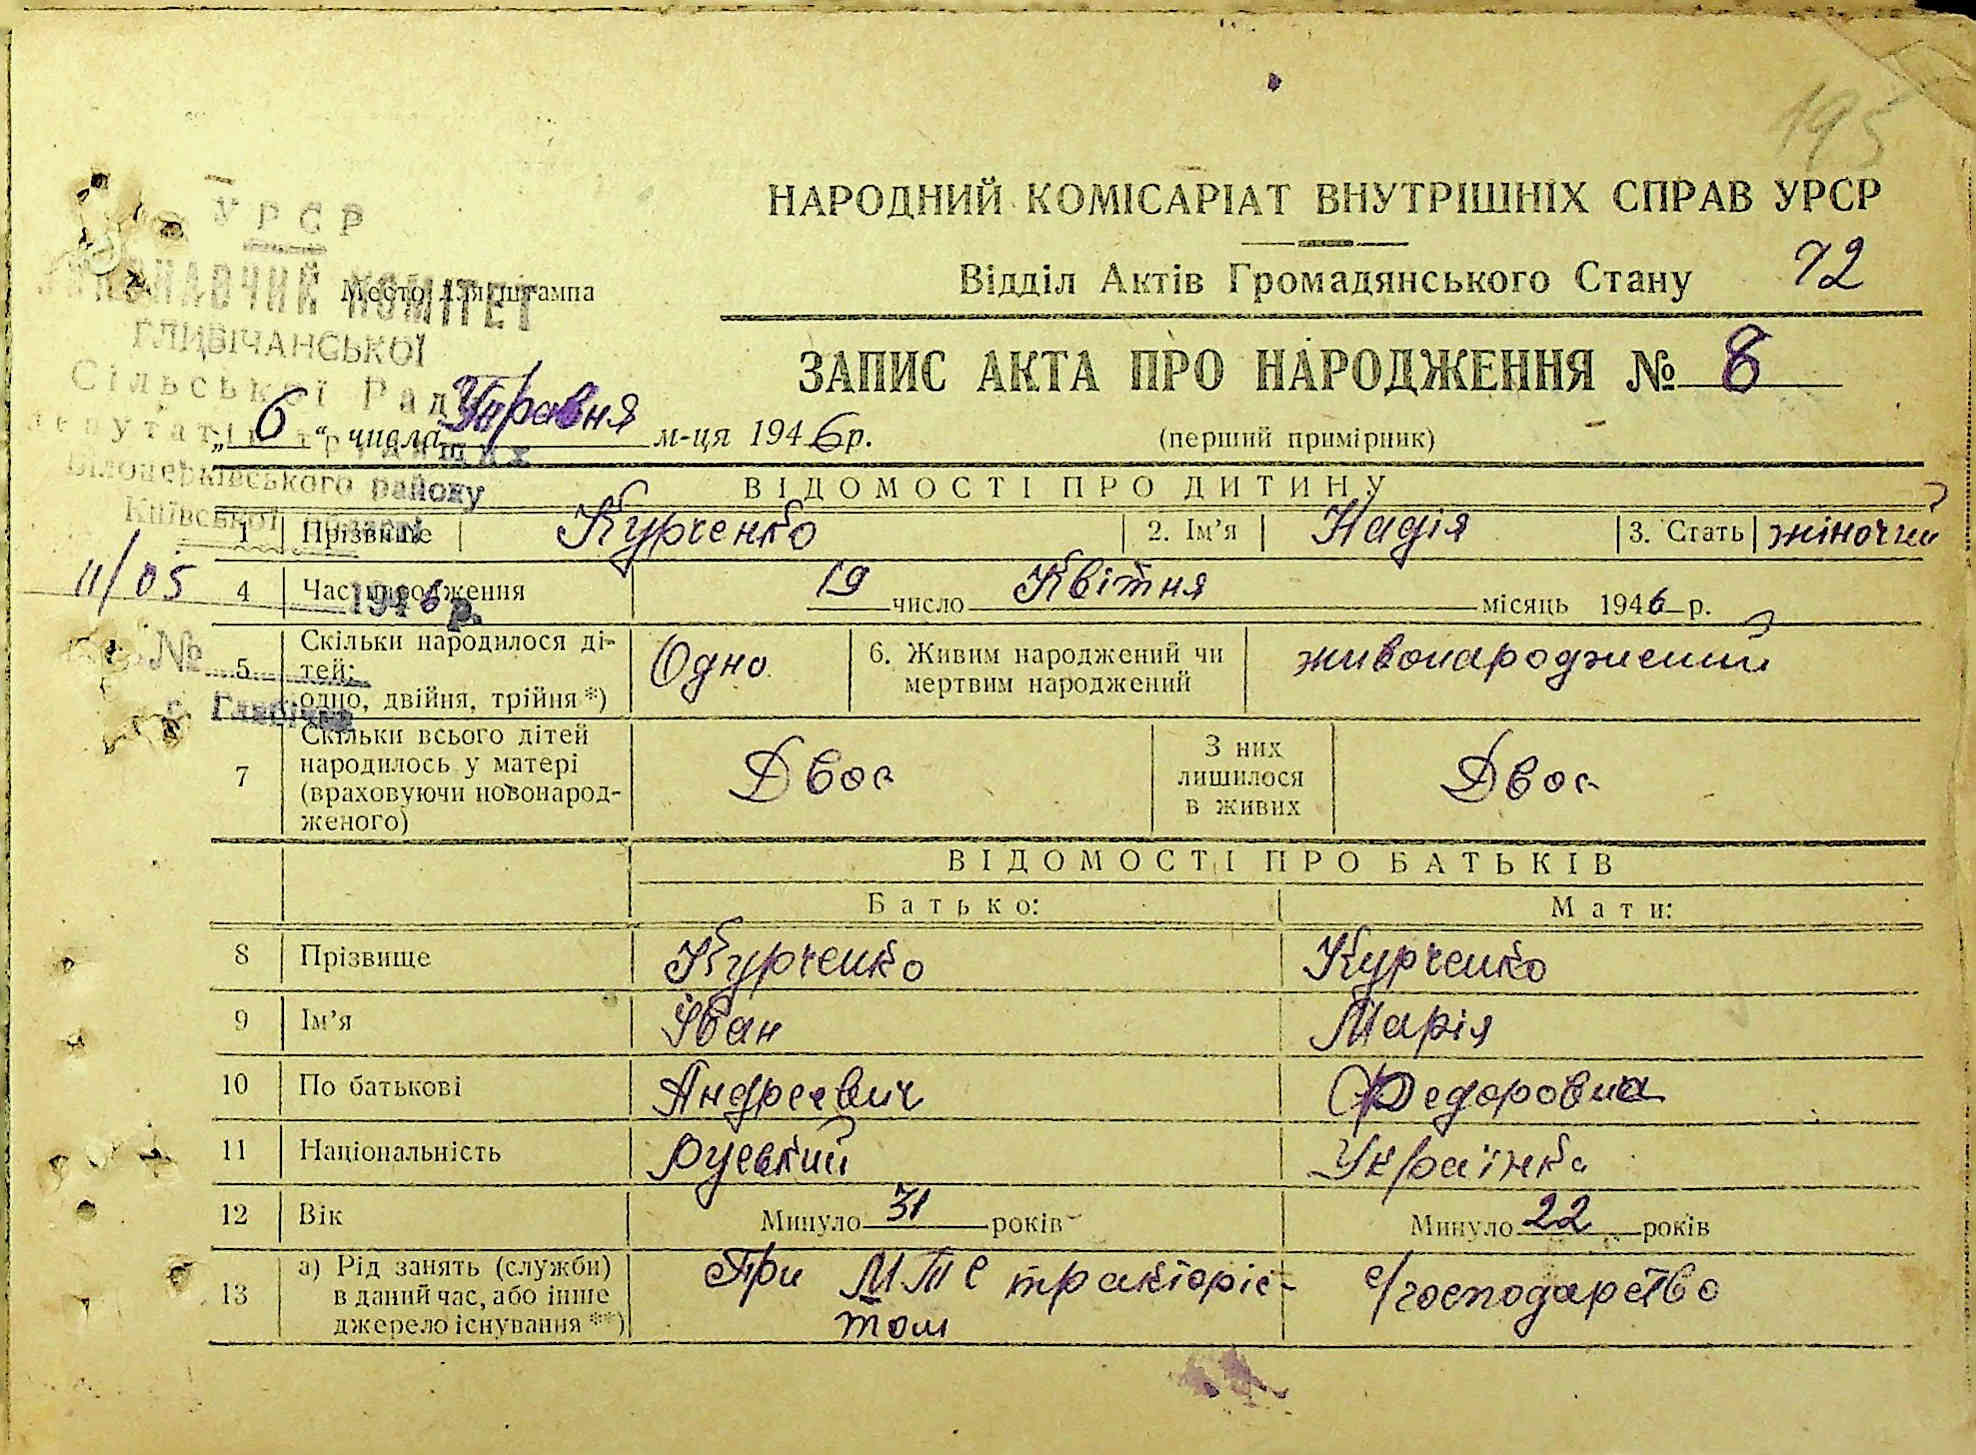 195
УРСР
НАРОДНИЙ КОМІСАРІАТ ВНУТРІШНІХ СПРАВ УРСР
Відділ Актів Громадянського Стану 72
КОМІТЕТ
Место для штампа
ГЛИБІЧАНСЬКОЇ
Сільської Рад
ЗАПИС АКТА ПРО НАРОДЖЕННЯ № 8
„6“ числа Травня м-ця 1946 р.
(перший примірник)
Білоцерківського району
Київської області
ВІДОМОСТІ ПРО ДИТИНУ
1 Прізвище Курченко 2. Ім'я Надія 3. Стать жіночий
11/05 1946 р.
4 Час народження 19 число Квітня місяць 1946 р.
№
5 Скільки народилося ді-
тей:
одно, двійня, трійня*) Одно 6. Живим народжений чи
мертвим народжений живонароджений
7 Скільки всього дітей
народилось у матері
(враховуючи новонарод-
женого) Двоє З них
лишилося
в живих Двоє
ВІДОМОСТІ ПРО БАТЬКІВ
Батько: Мати:
8 Прізвище Курченко Курченко
9 Ім'я Іван Марія
10 По батькові Андреевич Федоровна
11 Національність Руський Українка
12 Вік Минуло 31 років Минуло 22 років
13 а) Рід занять (служби)
в даний час, або інше
джерело існування**) При МТС тракторіс-
том с/господарство